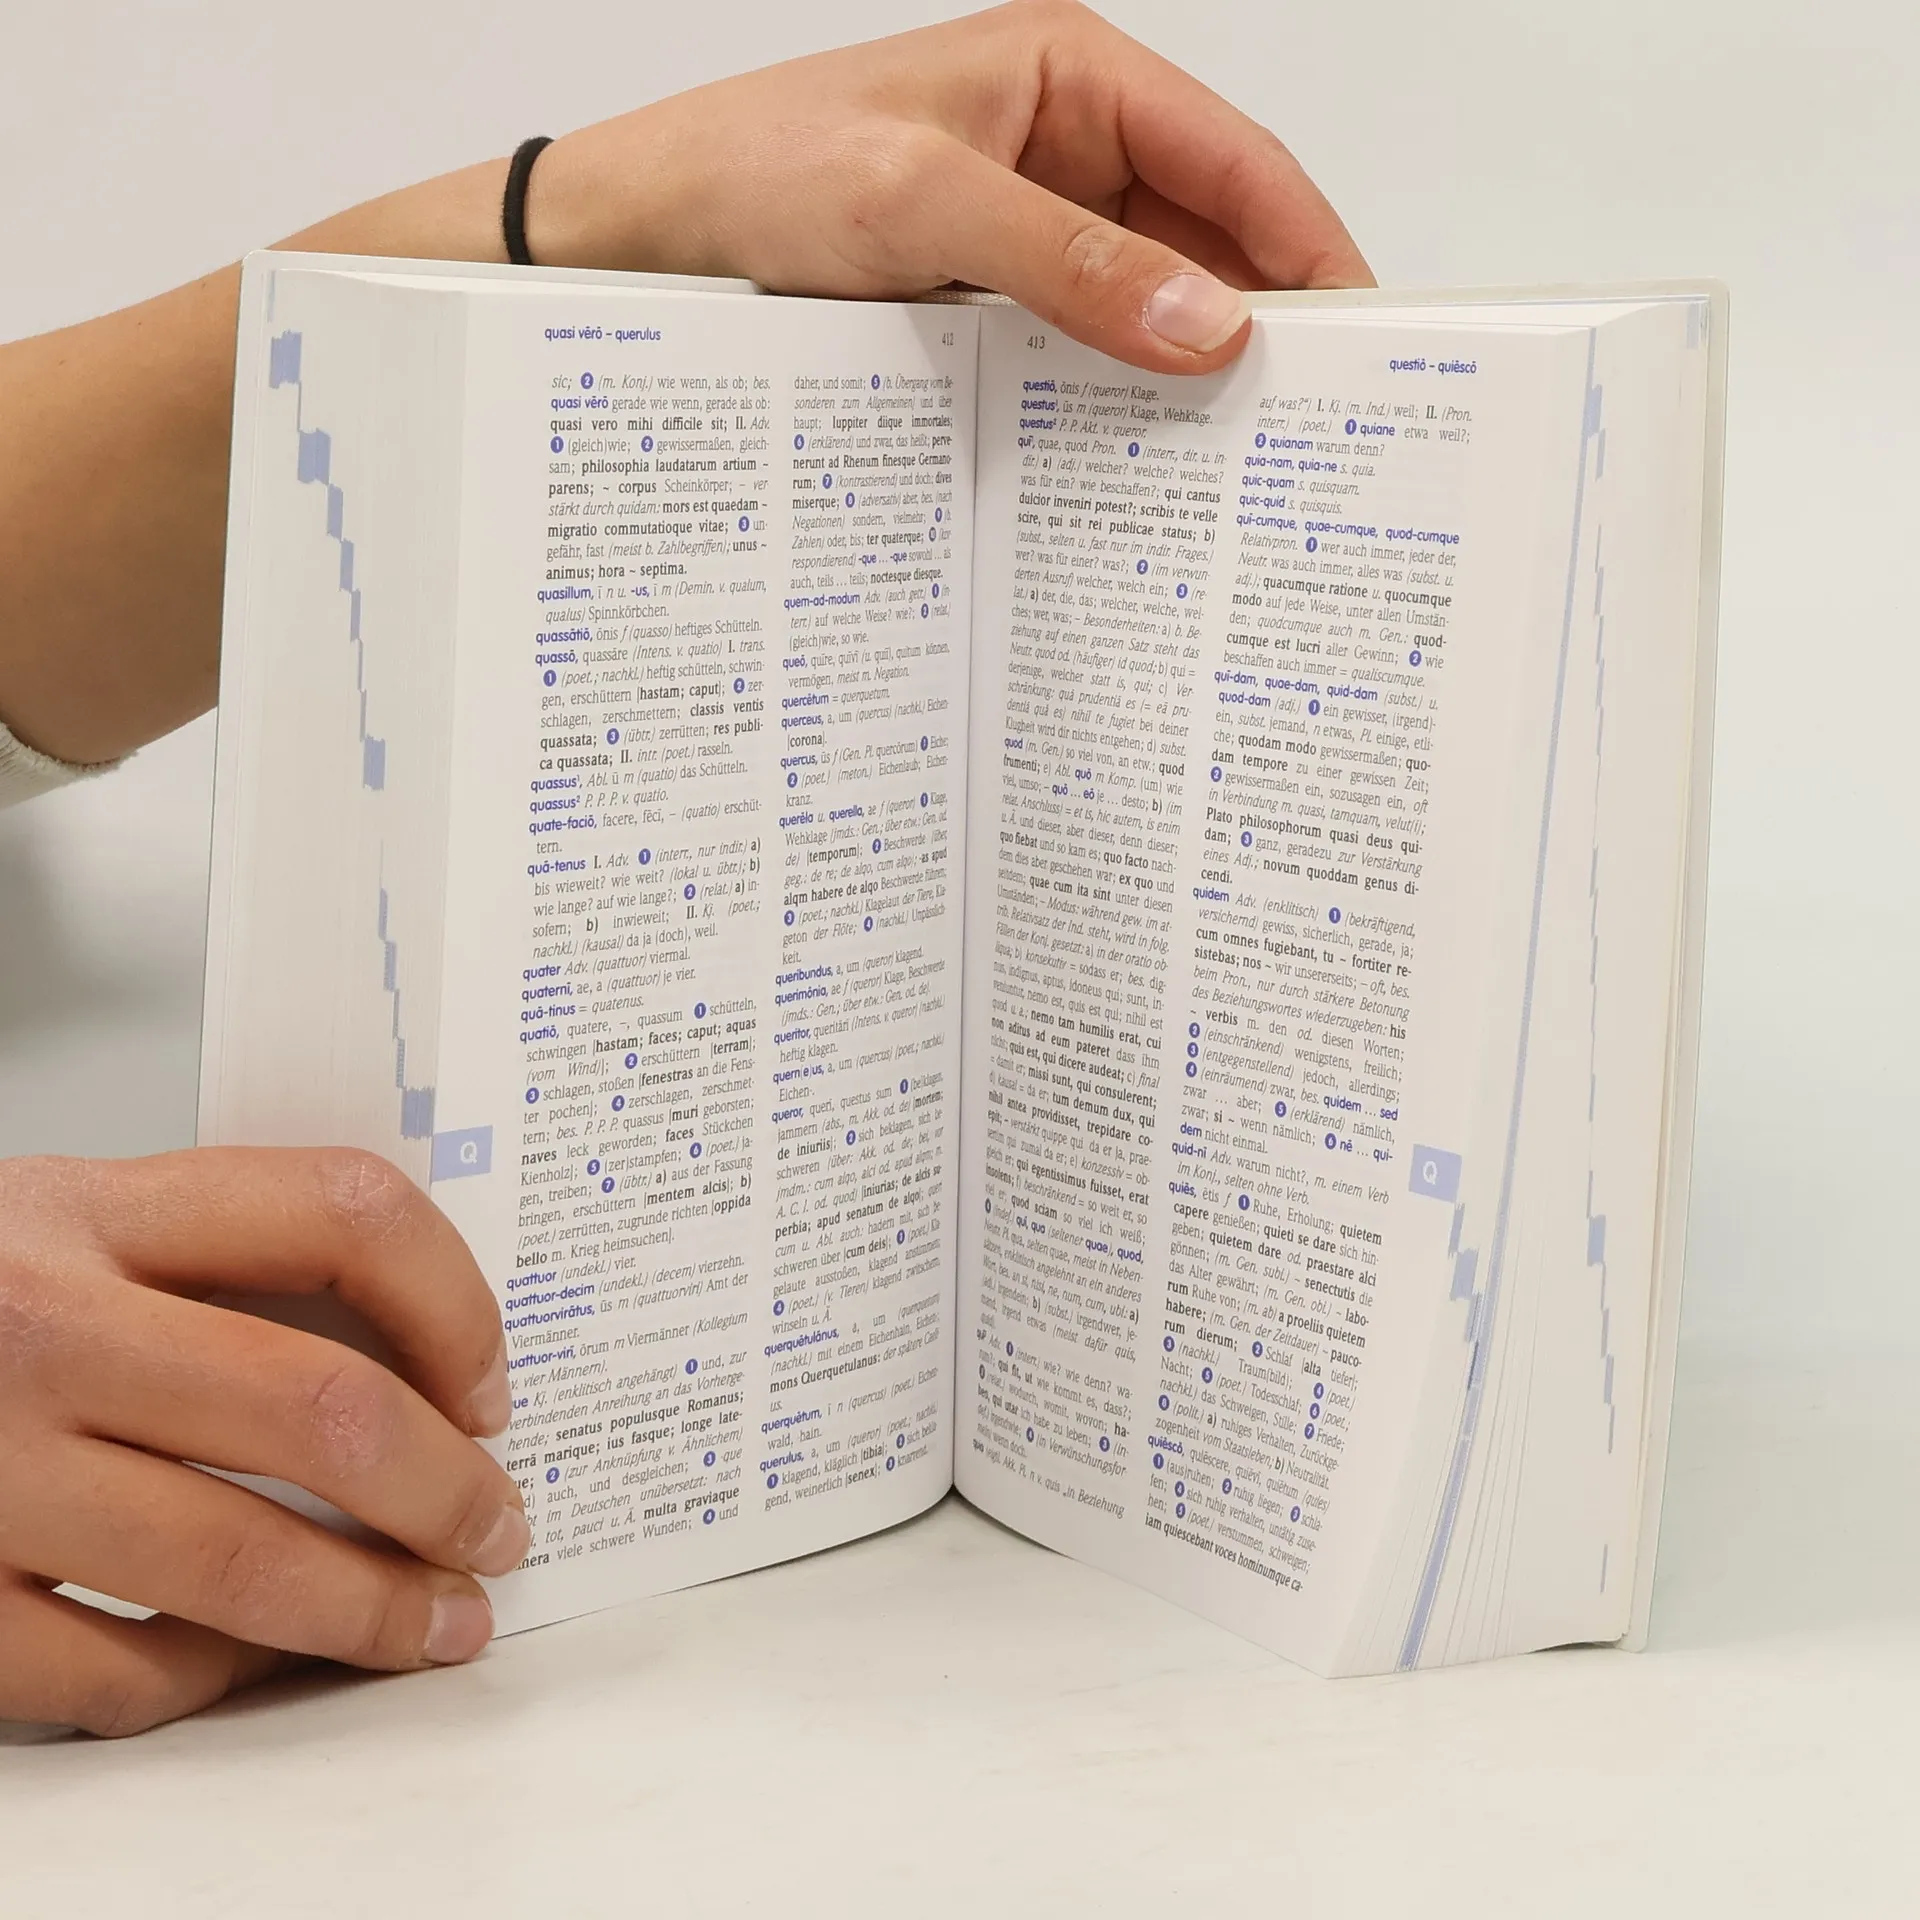 quasi vērō – querulus
412
sic; 2 (m. Konj.) wie wenn, als ob; bes.
quasi vērō gerade wie wenn, gerade als ob:
quasi vero mihi difficile sit; II. Adv.
1 (gleich)wie; 2 gewissermaßen, gleich-
sam; philosophia laudatarum artium ~
parens; ~ corpus Scheinkörper; – ver
stärkt durch quidam: mors est quaedam ~
migratio commutatioque vitae; 3 un-
gefähr, fast (meist b. Zahlbegriffen); unus ~
animus; hora ~ septima.
quasillum, ī n u. -us, ī m (Demin. v. qualum,
qualus) Spinnkörbchen.
quassātiō, ōnis f (quasso) heftiges Schütteln.
quassō, quassāre (Intens. v. quatio) I. trans.
1 (poet.; nachkl.) heftig schütteln, schwin-
gen, erschüttern [hastam; caput]; 2 zer-
schlagen, zerschmettern; classis ventis
quassata; 3 (übtr.) zerrütten; res publi-
ca quassata; II. intr. (poet.) rasseln.
quassus¹, Abl. ū m (quatio) das Schütteln.
quassus² P. P. P. v. quatio.
quate-faciō, facere, fēcī, – (quatio) erschüt-
tern.
quā-tenus I. Adv. 1 (interr., nur indir.) a)
bis wieweit? wie weit? (lokal u. übtr.); b)
wie lange? auf wie lange?; 2 (relat.) a) in-
sofern; b) inwieweit; II. Kj. (poet.;
nachkl.) (kausal) da ja (doch), weil.
quater Adv. (quattuor) viermal.
quaternī, ae, a (quattuor) je vier.
quā-tinus = quatenus.
quatiō, quatere, –, quassum 1 schütteln,
schwingen [hastam; faces; caput; aquas
(vom Wind)]; 2 erschüttern [terram];
3 schlagen, stoßen [fenestras an die Fens-
ter pochen]; 4 zerschlagen, zerschmet-
tern; bes. P. P. P. quassus [muri geborsten;
naves leck geworden; faces Stückchen
Kienholz]; 5 (zer)stampfen; 6 (poet.) ja-
gen, treiben; 7 (übtr.) a) aus der Fassung
bringen, erschüttern [mentem alcis]; b)
(poet.) zerrütten, zugrunde richten [oppida
bello m. Krieg heimsuchen].
quattuor (undekl.) vier.
quattuor-decim (undekl.) (decem) vierzehn.
quattuorvirātus, ūs m (quattuorviri) Amt der
Viermänner.
quattuor-virī, ōrum m Viermänner (Kollegium
v. vier Männern).
que Kj. (enklitisch angehängt) 1 und, zur
verbindenden Anreihung an das Vorherge-
hende; senatus populusque Romanus;
terrā marique; ius fasque; longe late-
que; 2 (zur Anknüpfung v. Ähnlichem)
auch, und desgleichen; 3 que
im Deutschen unübersetzt: nach
tot, pauci u. Ä. multa graviaque
viele schwere Wunden; 4 und
daher, und somit; 5 (b. Übergang vom Be-
sonderen zum Allgemeinen) und über
haupt; Iuppiter diique immortales;
6 (erklärend) und zwar, das heißt; perve-
nerunt ad Rhenum finesque Germano-
rum; 7 (kontrastierend) und doch; dives
miserque; 8 (adversativ) aber, bes. (nach
Negationen) sondern, vielmehr; 9 (b.
Zahlen) oder, bis; ter quaterque; 10 (kor-
respondierend) -que ... -que sowohl ... als
auch, teils ... teils; noctesque diesque.
quem-ad-modum Adv. (auch getr.) 1 (in-
terr.) auf welche Weise? wie?; 2 (relat.)
(gleich)wie, so wie.
queō, quīre, quīvī (u. quiī), quitum können,
vermögen, meist m. Negation.
quercētum = querquetum.
querceus, a, um (quercus) (nachkl.) Eichen-
[corona].
quercus, ūs f (Gen. Pl. quercōrum) 1 Eiche;
2 (poet.) (meton.) Eichenlaub; Eichen-
kranz.
querēla u. querella, ae f (queror) 1 Klage,
Wehklage (jmds.: Gen.; über etw.: Gen. od.
de) [temporum]; 2 Beschwerde (über,
geg.: de re; de algo, cum algo); -as apud
alqm habere de algo Beschwerde führen;
3 (poet.; nachkl.) Klagelaut der Tiere, Kla-
geton der Flöte; 4 (nachkl.) Unpässlich-
keit.
queribundus, a, um (queror) klagend.
querimōnia, ae f (queror) Klage, Beschwerde
(jmds.: Gen.; über etw.: Gen. od. de).
queritor, queritārī (Intens. v. queror) (nachkl.)
heftig klagen.
quern(e)us, a, um (quercus) (poet.; nachkl.)
Eichen-.
queror, querī, questus sum 1 (be)klagen,
jammern (abs., m. Akk. od. de) [mortem;
de iniuriis]; 2 sich beklagen, sich be-
schweren (über: Akk. od. de; bei, vor
jmdm.: cum algo, alci od. apud alqm; m.
A. C. I. od. quod) [iniurias; de alcis su-
perbia; apud senatum de algo]; quer
cum u. Abl. auch: hadern mit, sich be-
schweren über [cum deis]; 3 (poet.) Kla-
gelaute ausstoßen, klagend anstimmen;
4 (poet.) (v. Tieren) klagend zwitschern,
winseln u. Ä.
querquētulānus, a, um (querquetum)
(nachkl.) mit einem Eichenhain, Eichen-;
mons Querquetulanus: der spätere Caeli-
us.
querquētum, ī n (quercus) (poet.) Eichen-
wald, -hain.
querulus, a, um (queror) (poet.; nachkl.)
1 klagend, kläglich [tibia]; 2 sich bekla-
gend, weinerlich [senex]; 3 knarrend.
Q
413
questiō – quiēscō
questiō, ōnis f (queror) Klage.
questus¹, ūs m (queror) Klage, Wehklage.
questus² P. P. Akt. v. queror.
quī¹, quae, quod Pron. 1 (interr., dir. u. in-
dir.) a) (adj.) welcher? welche? welches?
was für ein? wie beschaffen?; qui cantus
dulcior inveniri potest?; scribis te velle
scire, qui sit rei publicae status; b)
(subst., selten u. fast nur im indir. Frages.)
wer? was für einer? was?; 2 (im verwun-
derten Ausruf) welcher, welch ein; 3 (re-
lat.) a) der, die, das; welcher, welche, wel-
ches; wer, was; – Besonderheiten: a) b. Be-
ziehung auf einen ganzen Satz steht das
Neutr. quod od. (häufiger) id quod; b) qui =
derjenige, welcher statt is, qui; c) Ver-
schränkung: quā prudentiā es (= eā pru-
dentiā quā es) nihil te fugiet bei deiner
Klugheit wird dir nichts entgehen; d) subst.
quod (m. Gen.) so viel von, an etw.; quod
frumenti; e) Abl. quō m Komp. (um) wie
viel, umso; – quō ... eō je ... desto; b) (im
relat. Anschluss) = et is, hic autem, is enim
u. Ä. und dieser, aber dieser, denn dieser;
quo fiebat und so kam es; quo facto nach-
dem dies aber geschehen war; ex quo und
seitdem; quae cum ita sint unter diesen
Umständen; – Modus: während gew. im at-
trib. Relativsatz der Ind. steht, wird in folg.
Fällen der Konj. gesetzt: a) in der oratio ob-
liqua; b) konsekutiv = sodass er; bes. dig-
nus, indignus, aptus, idoneus qui; sunt, in-
veniuntur, nemo est, quis est qui; nihil est
quod u. a.; nemo tam humilis erat, cui
non aditus ad eum pateret dass ihm
nicht; quis est, qui dicere audeat; c) final
= damit er; missi sunt, qui consulerent;
d) kausal = da er; tum demum dux, qui
nihil antea providisset, trepidare co-
epit; – verstärkt quippe qui da er ja, prae-
sertim qui zumal da er; e) konzessiv = ob-
gleich er; qui egentissimus fuisset, erat
insolens; f) beschränkend = so weit er, so
viel er; quod sciam so viel ich weiß;
4 (indef.) quī, qua (seltener quae), quod,
Neutr. Pl. qua, selten quae, meist in Neben-
sätzen, enklitisch angelehnt an ein anderes
Wort, bes. an si, nisi, ne, num, cum, ubi: a)
(adj.) irgendein; b) (subst.) irgendwer, je-
mand, irgend etwas (meist dafür quis,
quid).
quī² Adv. 1 (interr.) wie? wie denn? wa-
rum?; qui fit, ut wie kommt es, dass?;
2 (relat.) wodurch, womit, wovon; ha-
beo, qui utar ich habe zu leben; 3 (in-
def.) irgendwie; 4 (in Verwünschungsfor-
meln) wenn doch.
quia (eigtl. Akk. Pl. n v. quis „in Beziehung
auf was?“) I. Kj. (m. Ind.) weil; II. (Pron.
interr.) (poet.) 1 quiane etwa weil?;
2 quianam warum denn?
quia-nam, quia-ne s. quia.
quic-quam s. quisquam.
quic-quid s. quisquis.
quī-cumque, quae-cumque, quod-cumque
Relativpron. 1 wer auch immer, jeder der,
Neutr. was auch immer, alles was (subst. u.
adj.); quacumque ratione u. quocumque
modo auf jede Weise, unter allen Umstän-
den; quodcumque auch m. Gen.: quod-
cumque est lucri aller Gewinn; 2 wie
beschaffen auch immer = qualiscumque.
quī-dam, quae-dam, quid-dam (subst.) u.
quod-dam (adj.) 1 ein gewisser, (irgend)-
ein, subst. jemand, n etwas, Pl. einige, etli-
che; quodam modo gewissermaßen; quo-
dam tempore zu einer gewissen Zeit;
2 gewissermaßen ein, sozusagen ein, oft
in Verbindung m. quasi, tamquam, velut(i);
Plato philosophorum quasi deus qui-
dam; 3 ganz, geradezu zur Verstärkung
eines Adj.; novum quoddam genus di-
cendi.
quidem Adv. (enklitisch) 1 (bekräftigend,
versichernd) gewiss, sicherlich, gerade, ja;
cum omnes fugiebant, tu ~ fortiter re-
sistebas; nos ~ wir unsererseits; – oft, bes.
beim Pron., nur durch stärkere Betonung
des Beziehungswortes wiederzugeben: his
~ verbis m. den od. diesen Worten;
2 (einschränkend) wenigstens, freilich;
3 (entgegenstellend) jedoch, allerdings;
4 (einräumend) zwar, bes. quidem ... sed
zwar ... aber; 5 (erklärend) nämlich,
zwar; si ~ wenn nämlich; 6 nē ... qui-
dem nicht einmal.
quid-nī Adv. warum nicht?, m. einem Verb
im Konj., selten ohne Verb.
quiēs, ētis f 1 Ruhe, Erholung; quietem
capere genießen; quieti se dare sich hin-
geben; quietem dare od. praestare alci
gönnen; (m. Gen. subi.) ~ senectutis die
das Alter gewährt; (m. Gen. obi.) ~ labo-
rum Ruhe von; (m. ab) a proeliis quietem
habere; (m. Gen. der Zeitdauer) ~ pauco-
rum dierum; 2 Schlaf [alta tiefer];
3 (nachkl.) Traum(bild); 4 (poet.)
Nacht; 5 (poet.) Todesschlaf; 6 (poet.;
nachkl.) das Schweigen, Stille; 7 Friede;
8 (polit.) a) ruhiges Verhalten, Zurückge-
zogenheit vom Staatsleben; b) Neutralität.
quiēscō, quiēscere, quiēvī, quiētum (quies)
1 (aus)ruhen; 2 ruhig liegen; 3 schla-
fen; 4 sich ruhig verhalten, untätig zuse-
hen; 5 (poet.) verstummen, schweigen;
iam quiescebant voces hominumque ca-
Q